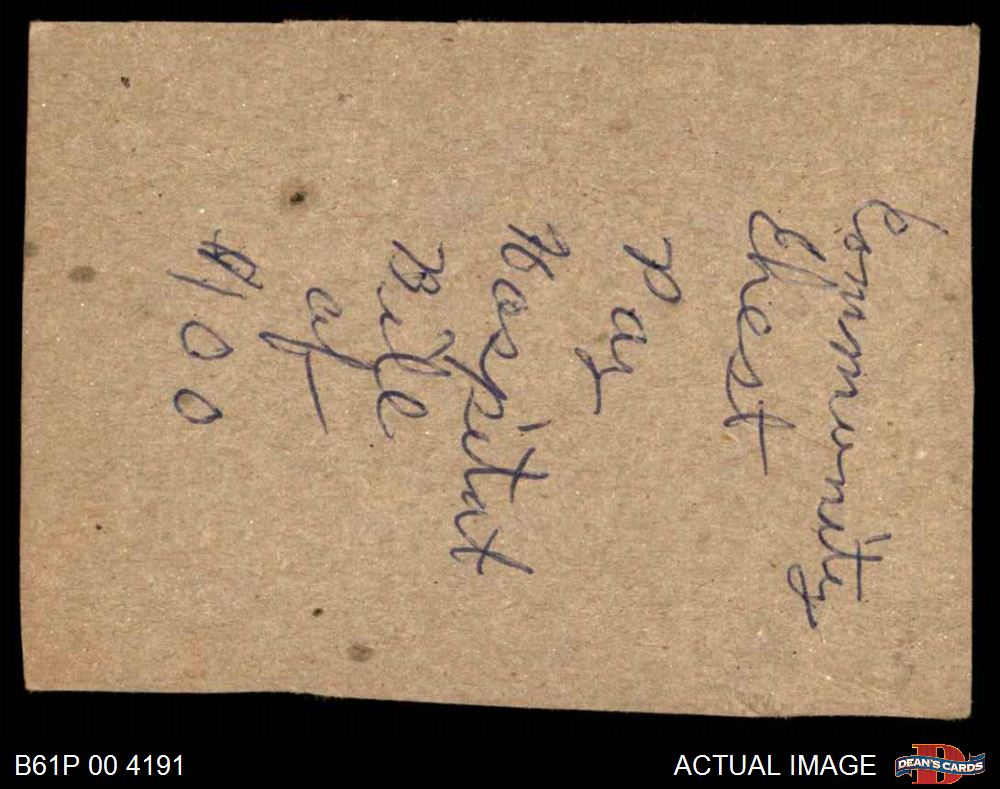 Community
Chest
Pay
Hospitat
Bill
of
$100
B61P 00 4191
ACTUAL IMAGE
D
DEAN'S CARDS